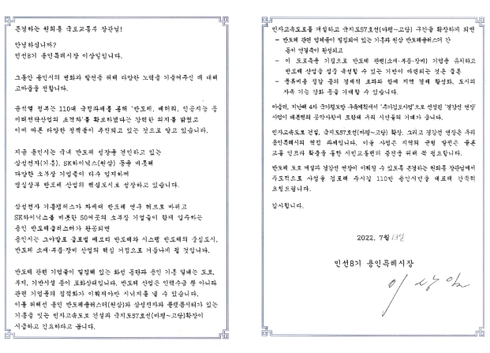 존경하는 원희룡 국토교통부 장관님!
안녕하십니까?
민선8기 용인특례시장 이상일입니다.
그동안 용인시의 변화와 발전을 위해 다양한 노력을 기울여주신 데 대해
고마움을 전합니다.
윤석열 정부는 110대 국정과제를 통해 '반도체, 배터리, 인공지능 등
미래전략산업의 초격차'를 확보하겠다는 강력한 의지를 밝혔고
이미 바른 다양한 정책들이 추진되고 있는 것으로 알고 있습니다.
지금 용인시는 국내 반도체 성장을 견인하고 있는
삼성전자(기흥), SK하이닉스(원삼) 등을 비롯해
다양한 소부장 기업들이 다수 입지하며
명실상부 반도체 산업의 핵심도시로 성장하고 있습니다.
삼성전자 기흥캠퍼스가 차세대 반도체 연구 허브로 바뀌고
SK하이닉스를 비롯한 50여곳의 소부장 기업들이 함께 입주하는
용인 반도체클러스터가 완공되면
용인시는 그야말로 글로벌 메모리 반도체와 시스템 반도체의 중심도시,
반도체 소재·부품·장비 산업의 핵심 거점으로 거듭나게 될 것입니다.
반도체 관련 기업들이 밀집해 있는
관련 기업들의 집적화가 이뤄져야만 시너지를 낼 수 있습니다.
이를 위해선 용인 반도체클러스터(원삼)와 삼성전자와
기흥을 잇는 민자고속도로 건설과 국지도57호선(마평~고당)확장이
시급하고 긴요하다고 봅니다.
민자고속도로를 개설하고 국지도57호선(마평~고당) 구간을 확장하게 되면
- 반도체 관련 업체들이 밀집되어 있는 기흥과 원삼 반도체클러스터 간
동서 연결축이 확립되고
- 이 도로축을 기점으로 반도체 관련(소재·부품·장비) 기업을 유치하고
반도체 산업을 육성할 수 있는 기반이 마련되는 것은 물론
- 물류비용 절감 등의 경제적 효과와 함께 지역 경제 활성화, 도시의
자족 기능 강화 등을 기대할 수 있습니다.
아울러, 지난해 4차 국가철도망 구축계획에서 '추가검토사업'으로 선정된 '경강선 연장'
사업이 대통령의 공약사항에 포함돼 우리 시민들의 기대가 큽니다.
민자고속도로 건설, 국지도57호선(마평~고당) 확장, 그리고 경강선 연장은 우리
용인특례시의 현안 과제입니다. 이들 사업은 지역의 균형 발전은 물론
교통 인프라 확충을 통한 시민교통편의 증진을 위해 꼭 필요합니다.
반도체 도로 개설과 경강선 연장이 이뤄질 수 있도록 존경하는 원희룡 장관님께서
주도적으로 사업을 검토해 주시길 110만 용인시민을 대표해 간곡히
요청드립니다.
감사합니다.
2022. 7월 13일
민선8기 용인특례시장
이상일